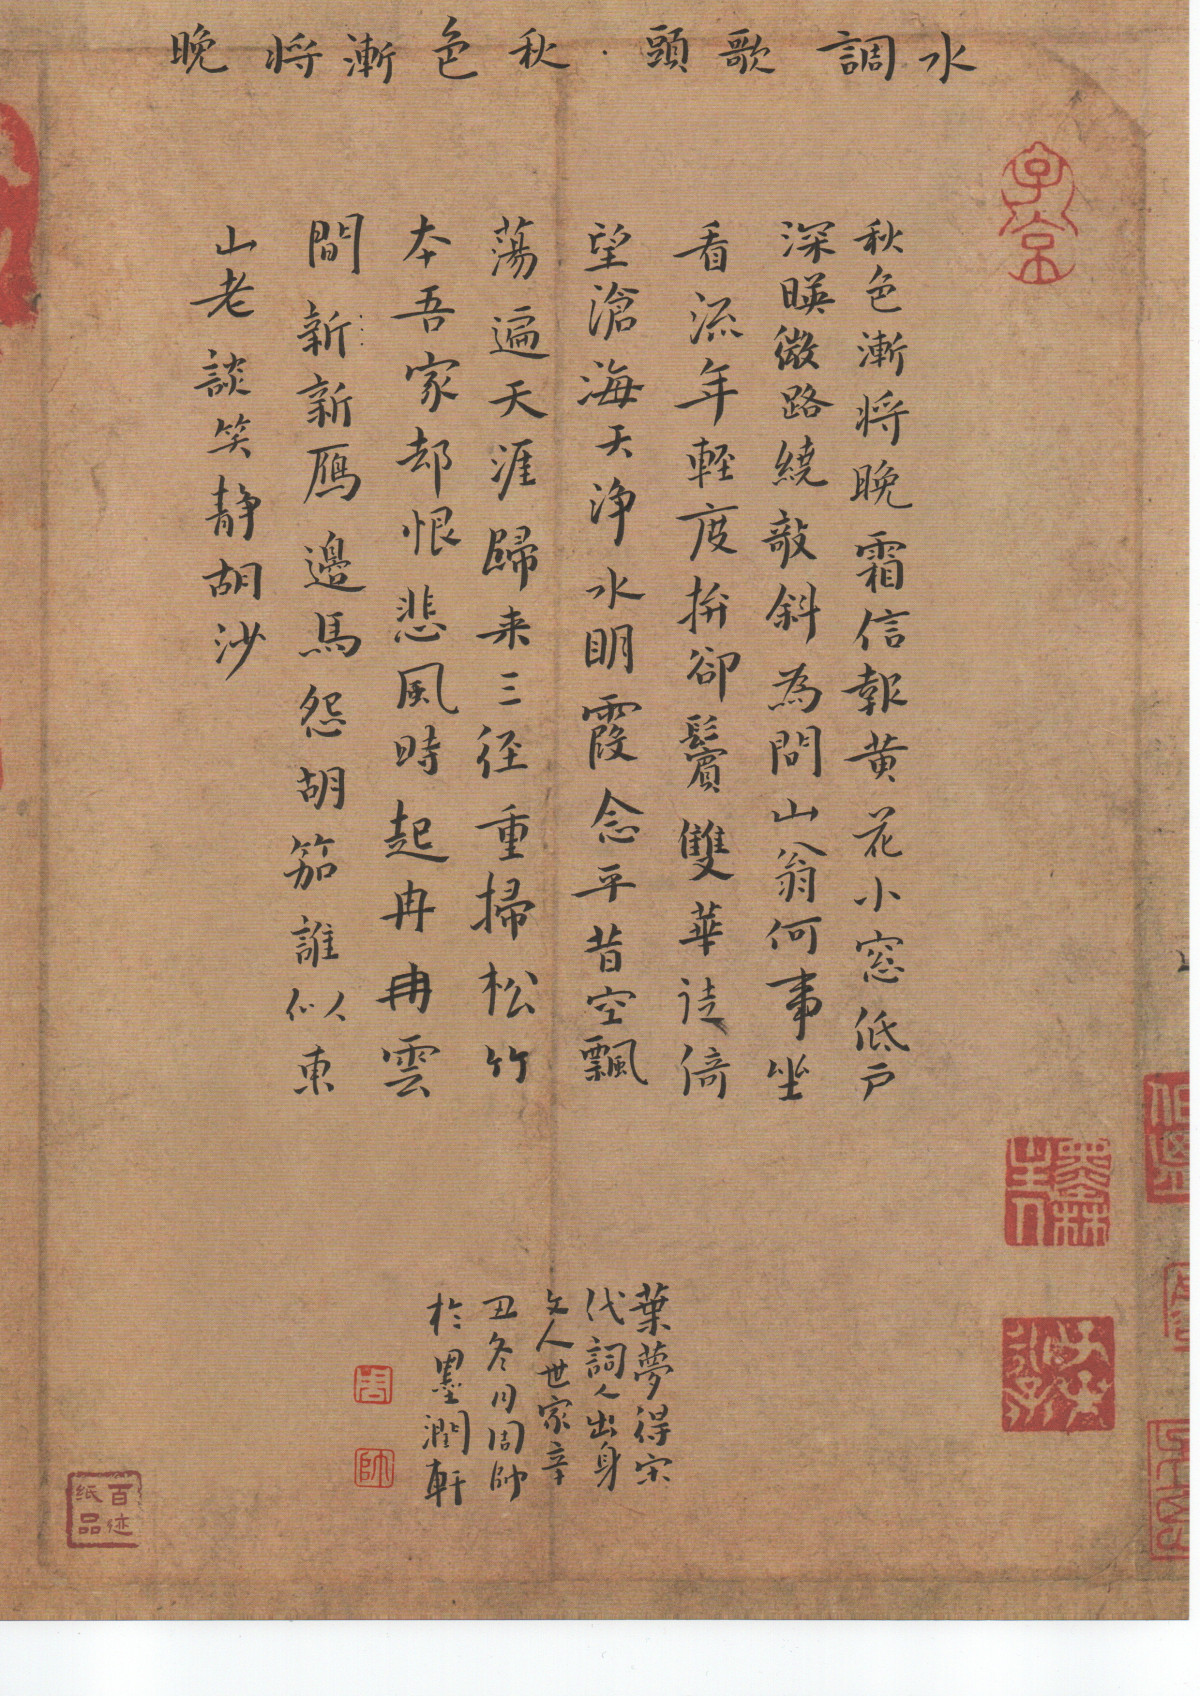 水調歌頭·秋色漸將晚
秋色漸將晚霜信報黄花小窓低戸
深暎微路繞敲斜為問山翁何事坐
看流年輕度拚卻鬢雙華徒倚
望滄海天淨水明霞念平昔空飄
蕩遍天涯歸来三徑重掃松竹
本吾家却恨悲風時起冉冉雲
間新新鴈邊馬怨胡笳誰似東
山老談笑静胡沙
葉夢得宋
代詞人出身
文人世家辛
丑冬月周帥
於墨潤軒
周
帥
百迹
纸品